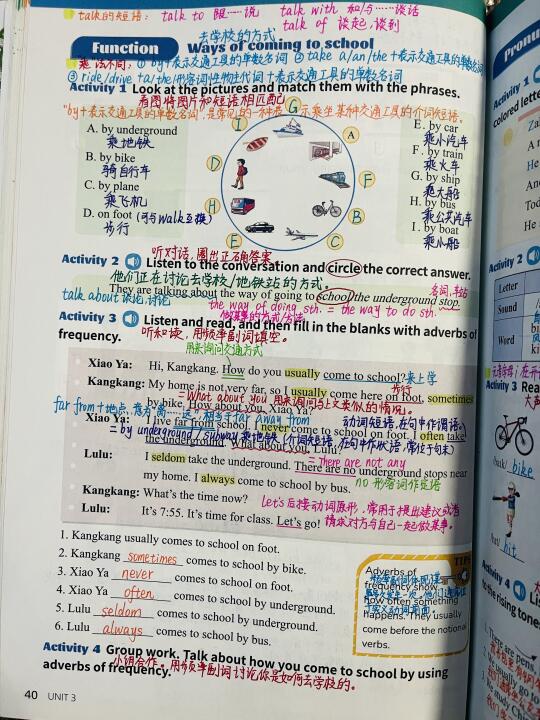 talk的短语: talk to 跟……说 talk with 和/与……谈话
talk of 谈起,谈到
去学校的方式
Function Ways of coming to school
① by+表示交通工具的单数名词 ② take a/an/the+表示交通工具的单数名词
③ ride/drive+a/the/形容词性物主代词+表示交通工具的单数名词
Activity 1 Look at the pictures and match them with the phrases.
看图将图片和短语相匹配
"by+表示交通工具的单数名词",是常见的一种表示乘坐某种交通工具的介词短语.
A. by underground
乘地铁
B. by bike
骑自行车
C. by plane
乘飞机
D. on foot (可与walk互换)
步行
G
I
A
D
F
H
B
E
C
E. by car
乘小汽车
F. by train
乘火车
G. by ship
乘大船
H. by bus
乘公共汽车
I. by boat
乘小船
听对话,圈出正确答案
Activity 2 Listen to the conversation and circle the correct answer.
他们正在讨论去学校/地铁站的方式.
名词,车站
They are talking about the way of going to school/the underground stop.
talk about 谈论,讨论 the way of doing sth. = the way to do sth.
做某事的方式/方法
Activity 3 Listen and read, and then fill in the blanks with adverbs of
frequency. 听和读,用频率副词填空。
用来询问交通方式
Xiao Ya: Hi, Kangkang. How do you usually come to school? 来上学
步行
Kangkang: My home is not very far, so I usually come here on foot, sometimes
by bike. How about you, Xiao Ya?
= What about you 用来询问与上文类似的情况。
Xiao Ya: I live far from school. I never come to school on foot. I often take
the underground. What about you, Lulu?
动词短语,在句中作谓语。
= by underground / subway 乘地铁 (介词短语,在句中作状语,常位于句末)
= There are not any
Lulu: I seldom take the underground. There are no underground stops near
my home. I always come to school by bus. no 形容词作定语
Kangkang: What's the time now?
Lulu: It's 7:55. It's time for class. Let's go!
Let's后接动词原形,常用于提出建议或者
请求对方与自己一起做某事。
1. Kangkang usually comes to school on foot.
2. Kangkang sometimes comes to school by bike.
3. Xiao Ya never comes to school on foot.
4. Xiao Ya often comes to school by underground.
5. Lulu seldom comes to school by underground.
6. Lulu always comes to school by bus.
TIPS
Adverbs of
frequency show
how often something
happens. They usually
come before the notional
verbs.
Activity 4 Group work. Talk about how you come to school by using
adverbs of frequency. 小组合作。用频率副词讨论你是如何去学校的。
40 UNIT 3
Activity 1
colored lette
Activity 2
Letter
Sound
Word
Activity 3 Rea
bike
hit
Activity 4 Lis
to the rising tone